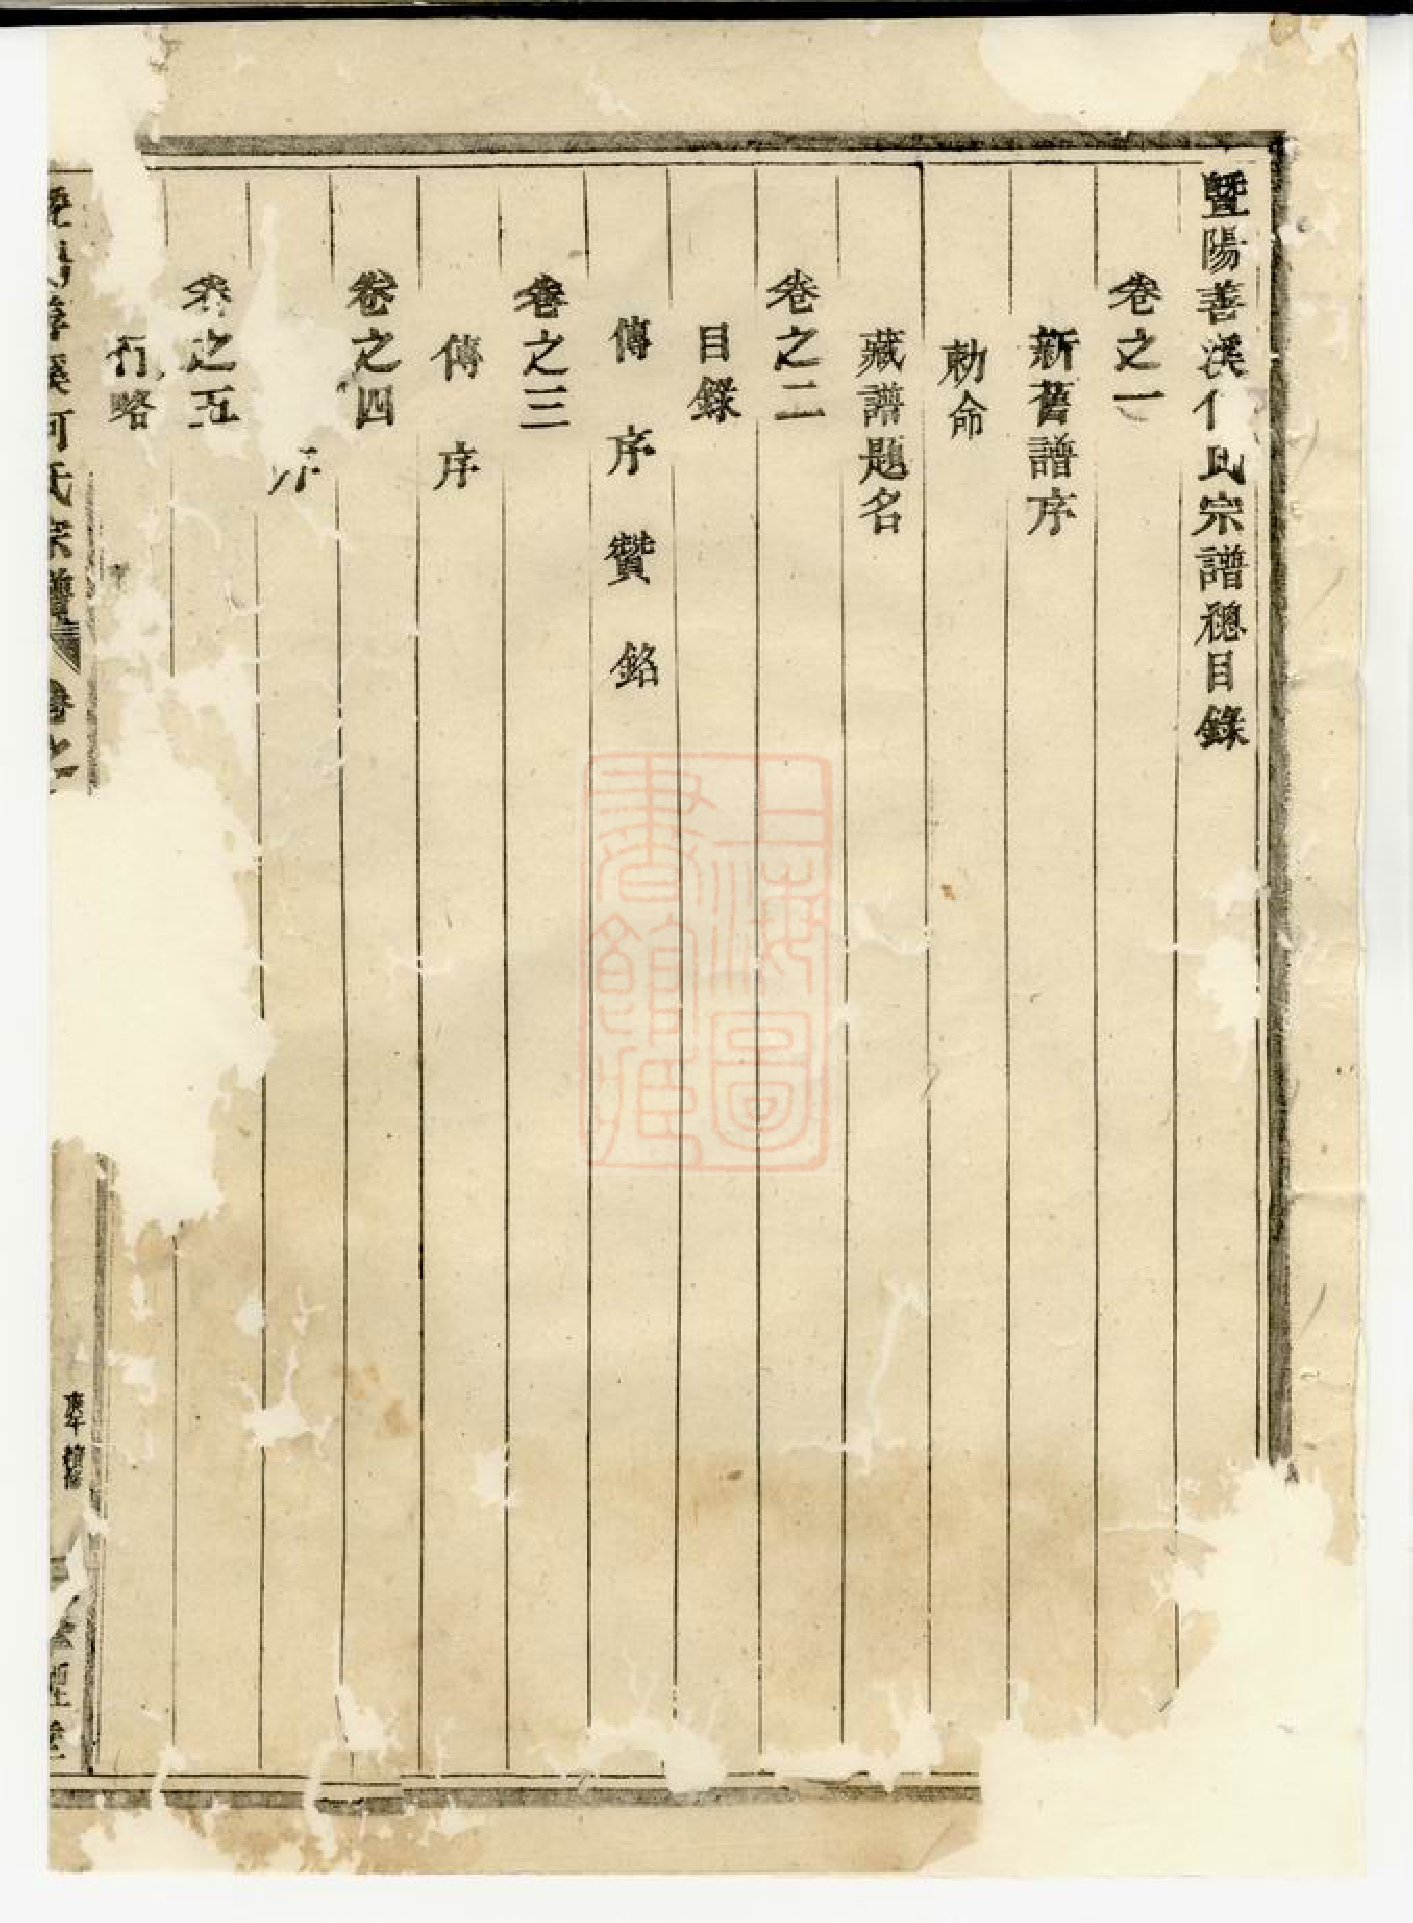 暨陽善溪何氏宗譜總目錄
卷之一
新舊譜序
勅命
藏譜題名
卷之二
目錄
傳序贊銘
卷之三
傳序
卷之四
序
卷之五
行略
善溪何氏宗譜
卷之
庚午續修
上海圖書館藏